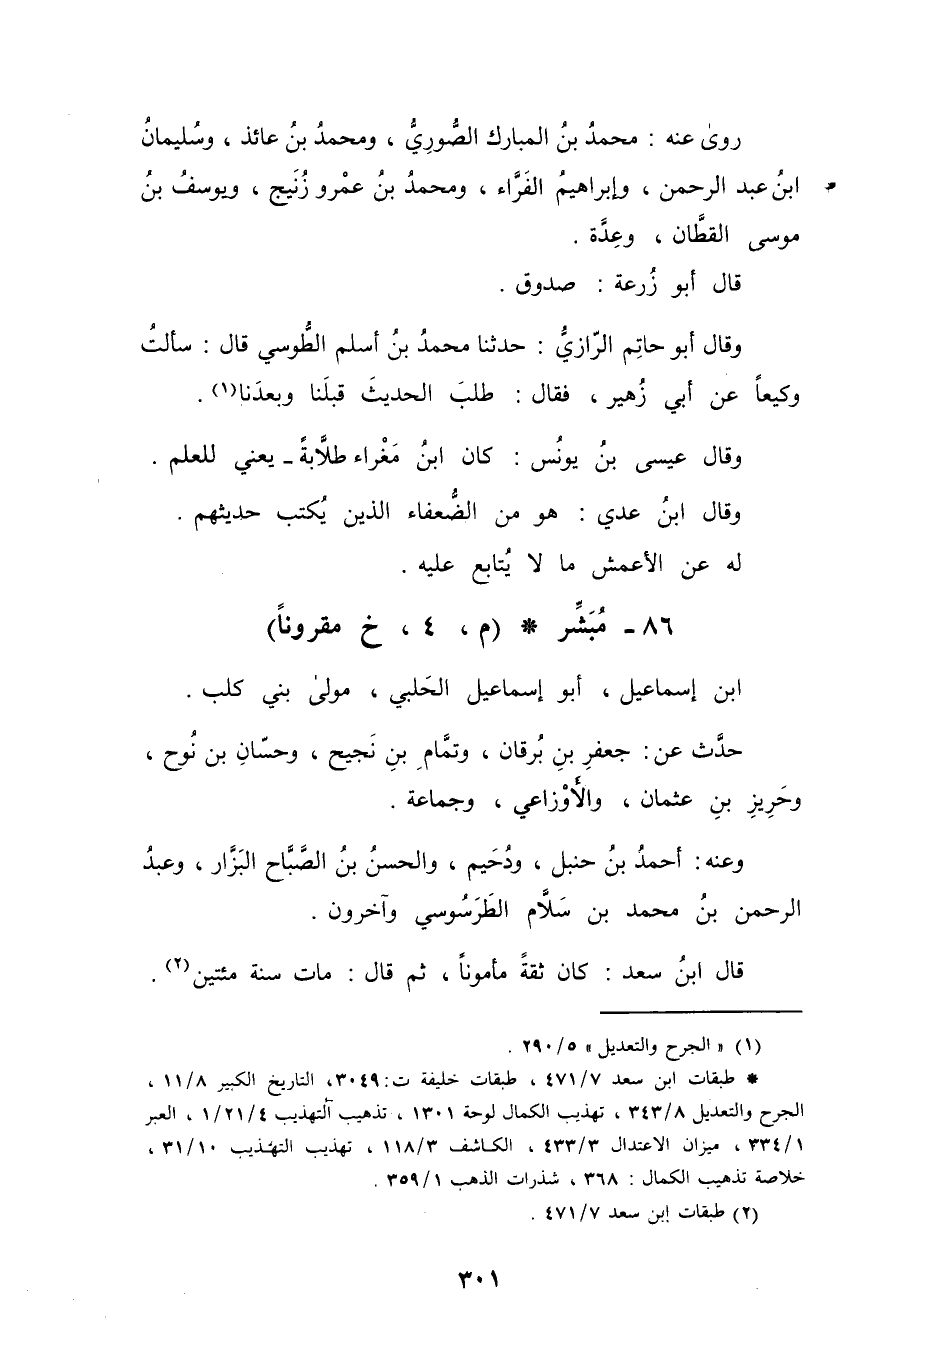 روىٰ عنه : محمدُ بنُ المبارك الصُّورِيُّ ، ومحمدُ بنُ عائذ ، وسُليمانُ
ابنُ عبد الرحمن ، وإبراهيمُ الفَرَّاء ، ومحمدُ بنُ عمْرو زُنَيج ، ويوسفُ بنُ
موسى القطَّان ، وعِدَّة .
قال أبو زُرعة : صدوق .
وقال أبو حاتِم الرّازيُّ : حدثنا محمدُ بنُ أسلم الطُّوسي قال : سألتُ
وكيعاً عن أبي زُهير ، فقال : طلبَ الحديثَ قبلَنا وبعدَنا(١) .
وقال عيسى بنُ يونُس : كان ابنُ مَغْراء طلَّابةً ـ يعني للعلم .
وقال ابنُ عدي : هو من الضُّعفاء الذين يُكتب حديثهم .
له عن الأعمش ما لا يُتابع عليه .
٨٦ ـ مُبَشِّر * (م ، ٤ ، خ مقروناً)
ابن إسماعيل ، أبو إسماعيل الحَلبي ، مولىٰ بني كلب .
حدَّث عن : جعفرِ بنِ بُرقان ، وتمَّامِ بنِ نَجيح ، وحسّانِ بن نُوح ،
وحَرِيزِ بنِ عثمان ، والأَوْزاعي ، وجماعة .
وعنه : أحمدُ بنُ حنبل ، ودُحَيم ، والحسنُ بنُ الصَّبَّاح البَزَّار ، وعبدُ
الرحمن بنُ محمد بن سَلَّام الطَرَسُوسي وآخرون .
قال ابنُ سعد : كان ثقةً مأموناً ، ثم قال : مات سنة مئتين(٢) .
(١) « الجرح والتعديل » ٢٩٠/٥ .
* طبقات ابن سعد ٤٧١/٧ ، طبقات خليفة ت : ٣٠٤٩ ، التاريخ الكبير ١١/٨ ،
الجرح والتعديل ٣٤٣/٨ ، تهذيب الكمال لوحة ١٣٠١ ، تذهيب التهذيب ١/٢١/٤ ، العبر
٣٣٤/١ ، ميزان الاعتدال ٤٣٣/٣ ، الكاشف ١١٨/٣ ، تهذيب التهذيب ٣١/١٠ ،
خلاصة تذهيب الكمال : ٣٦٨ ، شذرات الذهب ٣٥٩/١ .
(٢) طبقات إبن سعد ٤٧١/٧ .
٣٠١